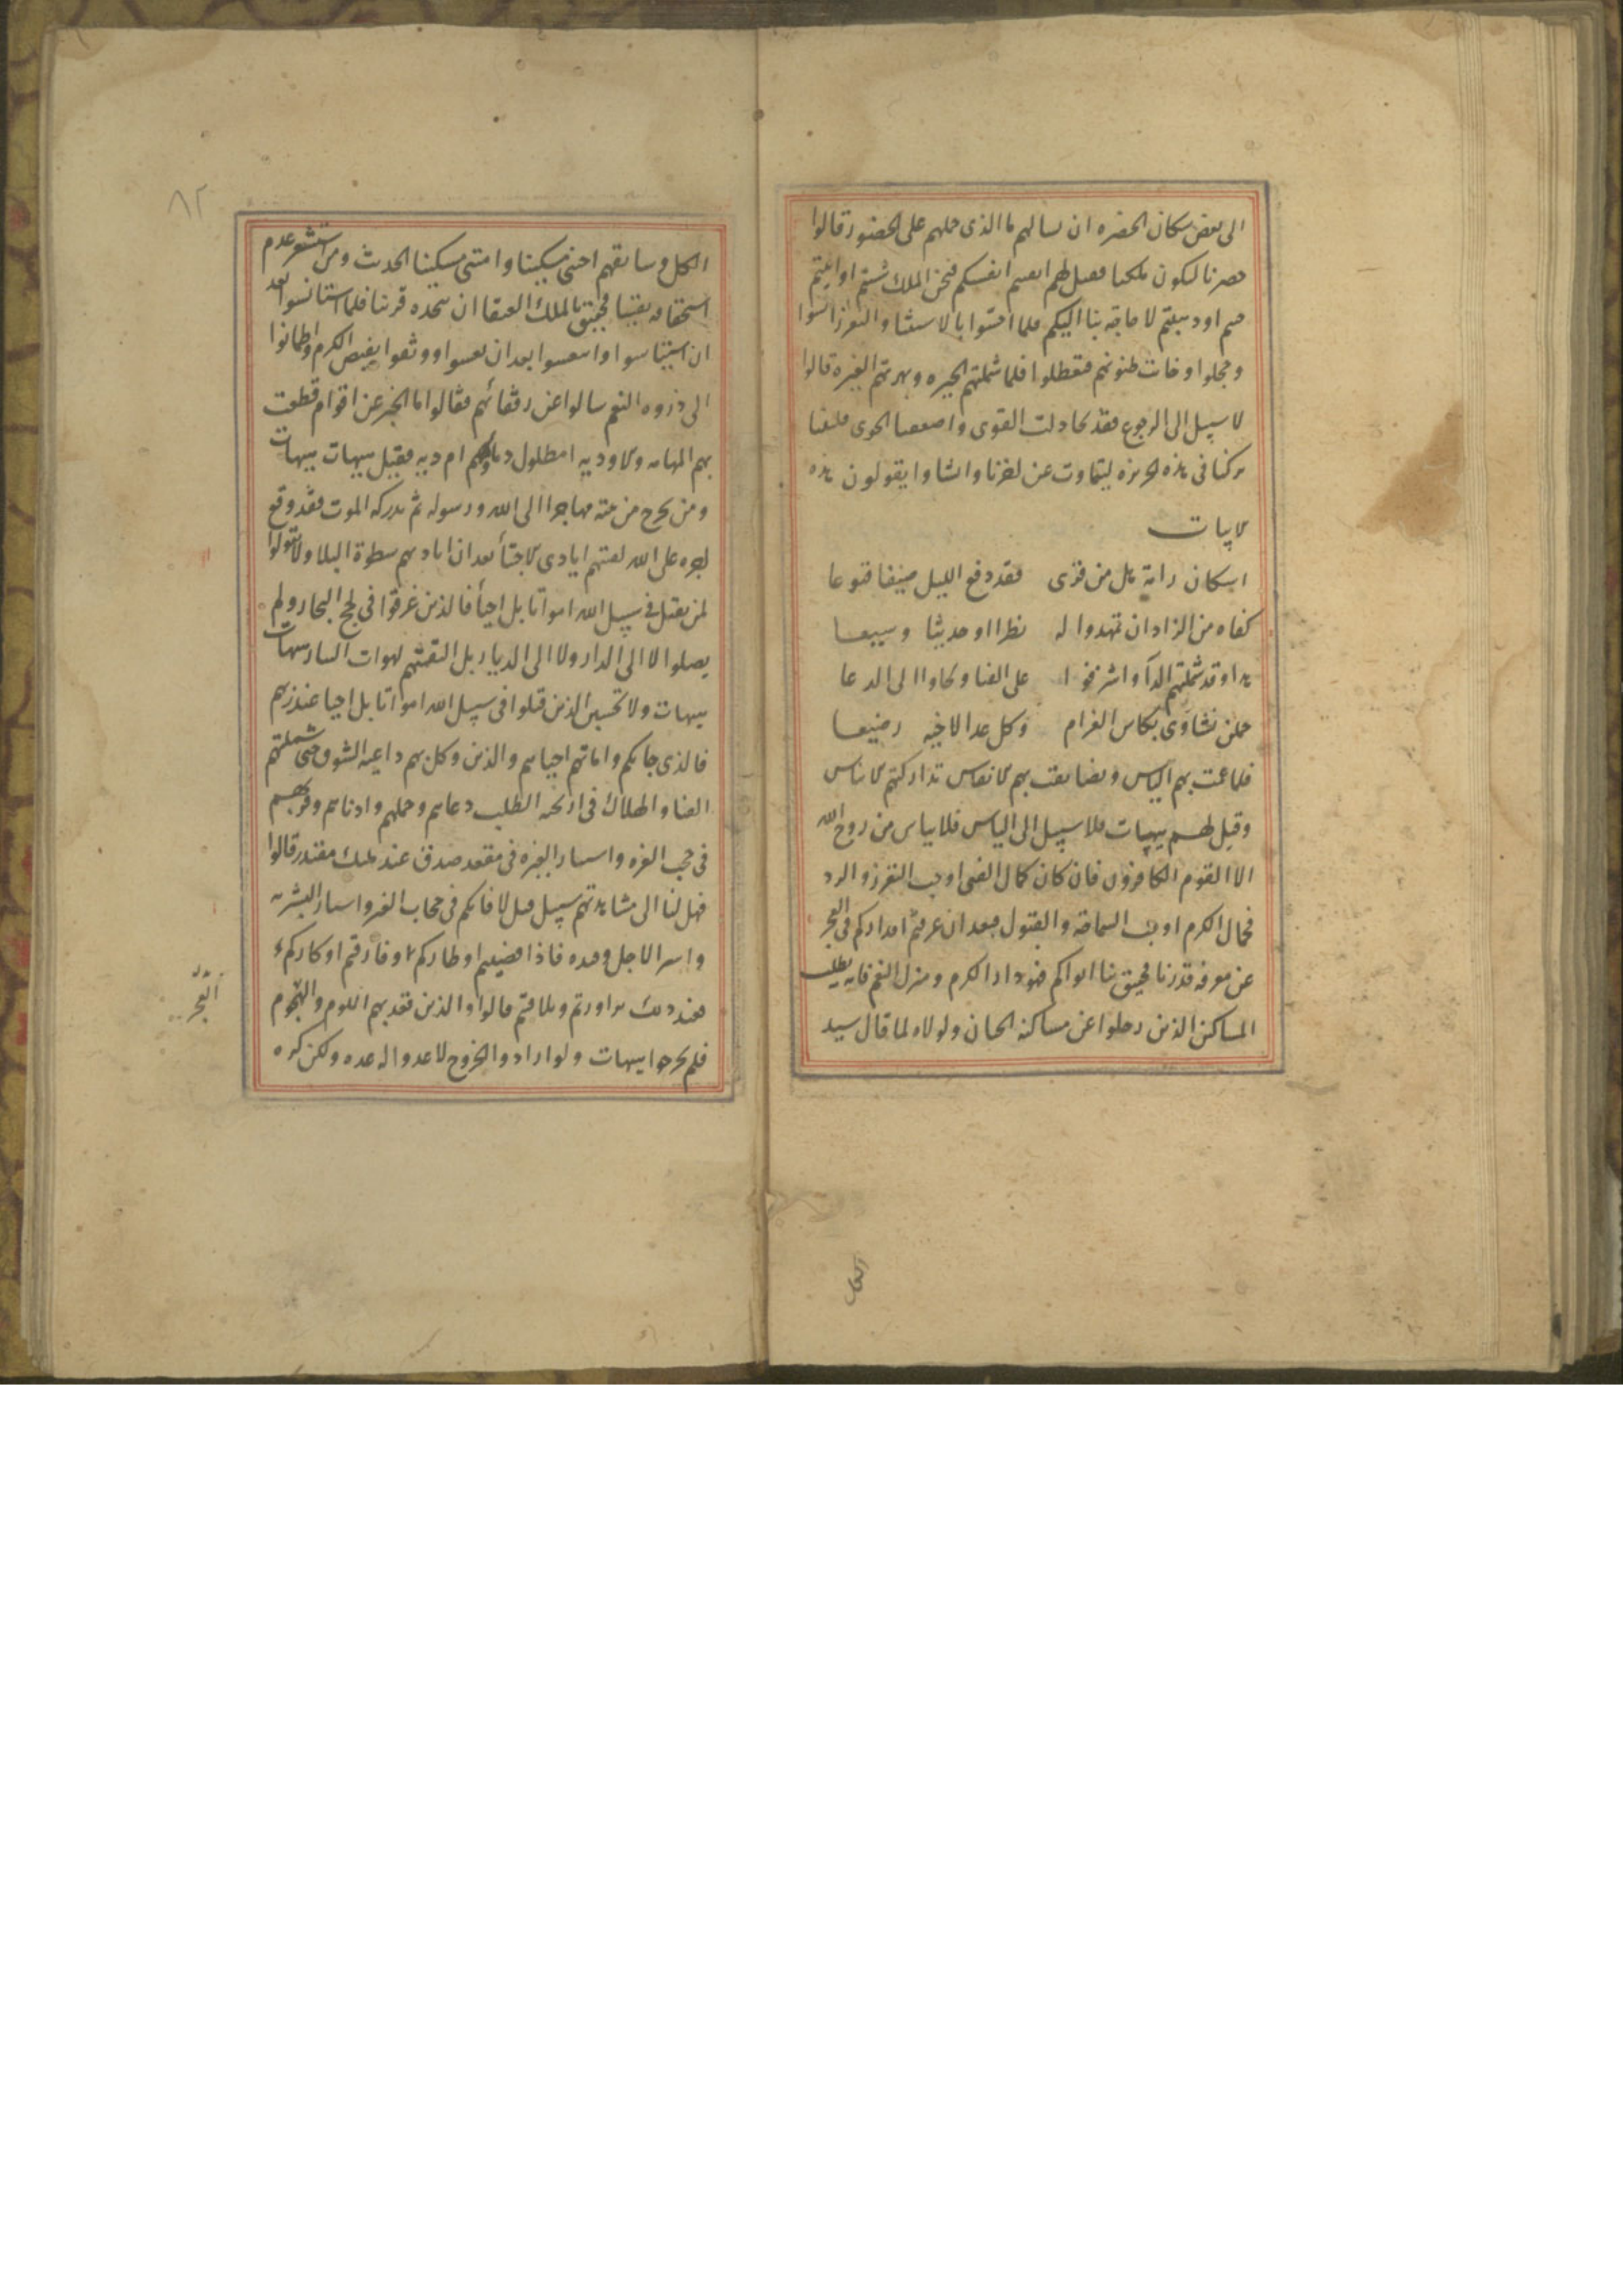 الى بعض سكان الحضره ان يسالهم ما الذى حملهم على الحضور قالوا
حضرنا ليكون ملكنا فقيل لهم اتعبتم انفسكم فنحن الملك شئتم او ابيتم
جئتم او ذهبتم لا حاجة بنا اليكم فلما احسوا بالاستغنا والتعزز ايسوا
وخجلوا وخابت ظنونهم فتعطلوا فلما شملتهم الحيره وبهرتهم العزه قالوا
لا سبيل الى الرجوع فقد تخاذلت القوى واضعفنا الجوى فليتنا
تركنا فى هذه الجزيره لنتماوت عن اخرنا وانشاوا يقولون هذه
الابيات
اسكان رامة هل من قرى فقد دفع الليل ضيفا قنوعا
كفاه من الزاد ان تمهدوا له نظرا او حديثا وسيعا
هذا وقد شملتهم الدآ واشرفوا على الفنا ولجاوا الى الدعا
حملن نشاوى بكاس الغرام وكل غدا لاخيه رضيعا
فلما عمت بهم الياس وتضايقت بهم الانفاس تداركتهم الايناس
وقيل لهم هيهات فلا سبيل الى الياس فلا يياس من روح الله
الا القوم الكافرون فان كان كمال الغنى اوجب التعزز والرد
فجمال الكرم اوجب السماحة والقبول فبعد ان عرفتم مقداركم فى العجز
عن معرفة قدرنا فحقيق بنا ايواكم فهو دار الكرم ومنزل النعم فانه يطلب
المساكين الذين رحلوا عن مساكنة الحسان ولولاه لما قال سيد
الكل
٨٢
الكل وسابقهم احينى مسكينا وامتنى مسكينا الحديث ومن استشعر عدم
استحقاقه يقينا فحقيق بالملك العنقا ان يتخذه قرينا فلما استانسوا بعد
ان استياسوا وانتعشوا بعد ان تعسوا ووثقوا بفيض الكرم واطمانوا
الى ذروه النعم سالوا عن رفقائهم فقالوا ما الخبر عن اقوام قطعت
بهم المهامه والاوديه امطلول دماوهم ام ديه فقيل هيهات هيهات
ومن يخرج من بيته مهاجرا الى الله ورسوله ثم يدركه الموت فقد وقع
اجره على الله لقتهم ايادى الاجتبأ بعد ان ابادهم سطوة البلا ولا تقولوا
لمن يقتل فى سبيل الله امواتا بل احيأ فالذين غرقوا فى لجج البحار ولم
يصلوا الا الى الدار ولا الى الديار بل التقمتهم لهوات التيار هيهات
هيهات ولا تحسبن الذين قتلوا فى سبيل الله امواتا بل احيا عند ربهم
فالذى جابكم واماتهم احياهم والذى وكل بهم داعيه الشوق حتى شملتهم
الفنا والهلاك فى اريحه الطلب دعاهم وحملهم وادناهم وقربهم
فى حجب العزه واستار العزه فى مقعد صدق عند مليك مقتدر قالوا
فهل لنا الى مشاهدتهم سبيل قيل لا فانكم فى حجاب الغر واستار البشريه
واسر الاجل وقيده فاذا قضيتم اوطاركم وفارقتم اوكاركم
فعند ذلك تزاورتم وتلاقيتم قالوا والذين قعد بهم اللوم والعجز
فلم يخرجوا هيهات ولو ارادوا الخروج لاعدوا له عده ولكن كره
العجز